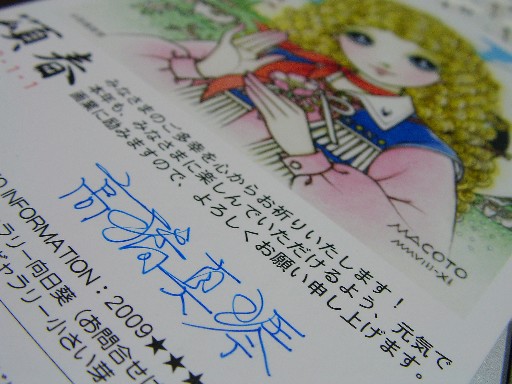 頌春
みなさまのご多幸を心からお祈りいたします!
本年も、みなさまに楽しんでいただけるよう、元気で
産業に励みますので、よろしくお願い申し上げます。
MACOTO
MMVIII-XI
高橋真琴
INFORMATION:2009★★★
ラリー向日葵(お問合せは
ギャラリー小さい芽